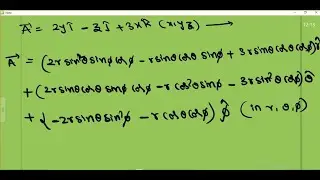 A⃗ = 2yî - zĵ + 3xk̂ (x,y,z) ⟶
A⃗ = (2r sin²θ sinϕ cosϕ - r sinθ cosθ sinϕ + 3r sinθ cosθ cosϕ) r̂
+ (2r sinθ cosθ sinϕ cosϕ - r cos²θ sinϕ - 3r sin²θ cosϕ) θ̂
+ (-2r sinθ sin²ϕ - r cosθ cosϕ) ϕ̂ (in r, θ, ϕ)